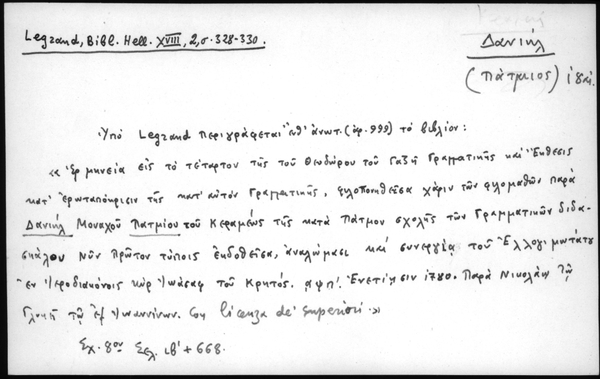 Legrand, Bibl. Hell. XVIII, 2, σ. 328-330.
Δανιήλ
(Πάτμιος)
Ὑπὸ Legrand περιγράφεται ἀνωτ. (ἀρ. 999) τὸ βιβλίον:
« Ἑρμηνεία εἰς τὸ τέταρτον τῆς τοῦ Θεοδώρου τοῦ Γαζῆ Γραμματικῆς καὶ Ἔκθεσις
κατ' ἐρωταπόκρισιν τῆς κατ' αὐτὸν Γραμματικῆς, φιλοπονηθεῖσα χάριν τῶν φιλομαθῶν παρὰ
Δανιὴλ Μοναχοῦ Πατμίου τοῦ Κεραμέως τῆς κατὰ Πάτμον σχολῆς τῶν Γραμματικῶν διδα-
σκάλου νῦν πρῶτον τύποις ἐκδοθεῖσα, ἀναλώμασι καὶ συνεργίᾳ τοῦ Ἐλλογιμωτάτου
ἐν Ἱεροδιακόνοις κὺρ Ἰωάσαφ τοῦ Κρητός. αψπ'. Ἐνετίῃσιν 1780. Παρὰ Νικολάῳ
Γλυκεῖ τῷ ἐξ Ἰωαννίνων. Con licenza de' superiori »
Σχ. 8ον Σελ. ιβ' + 668.